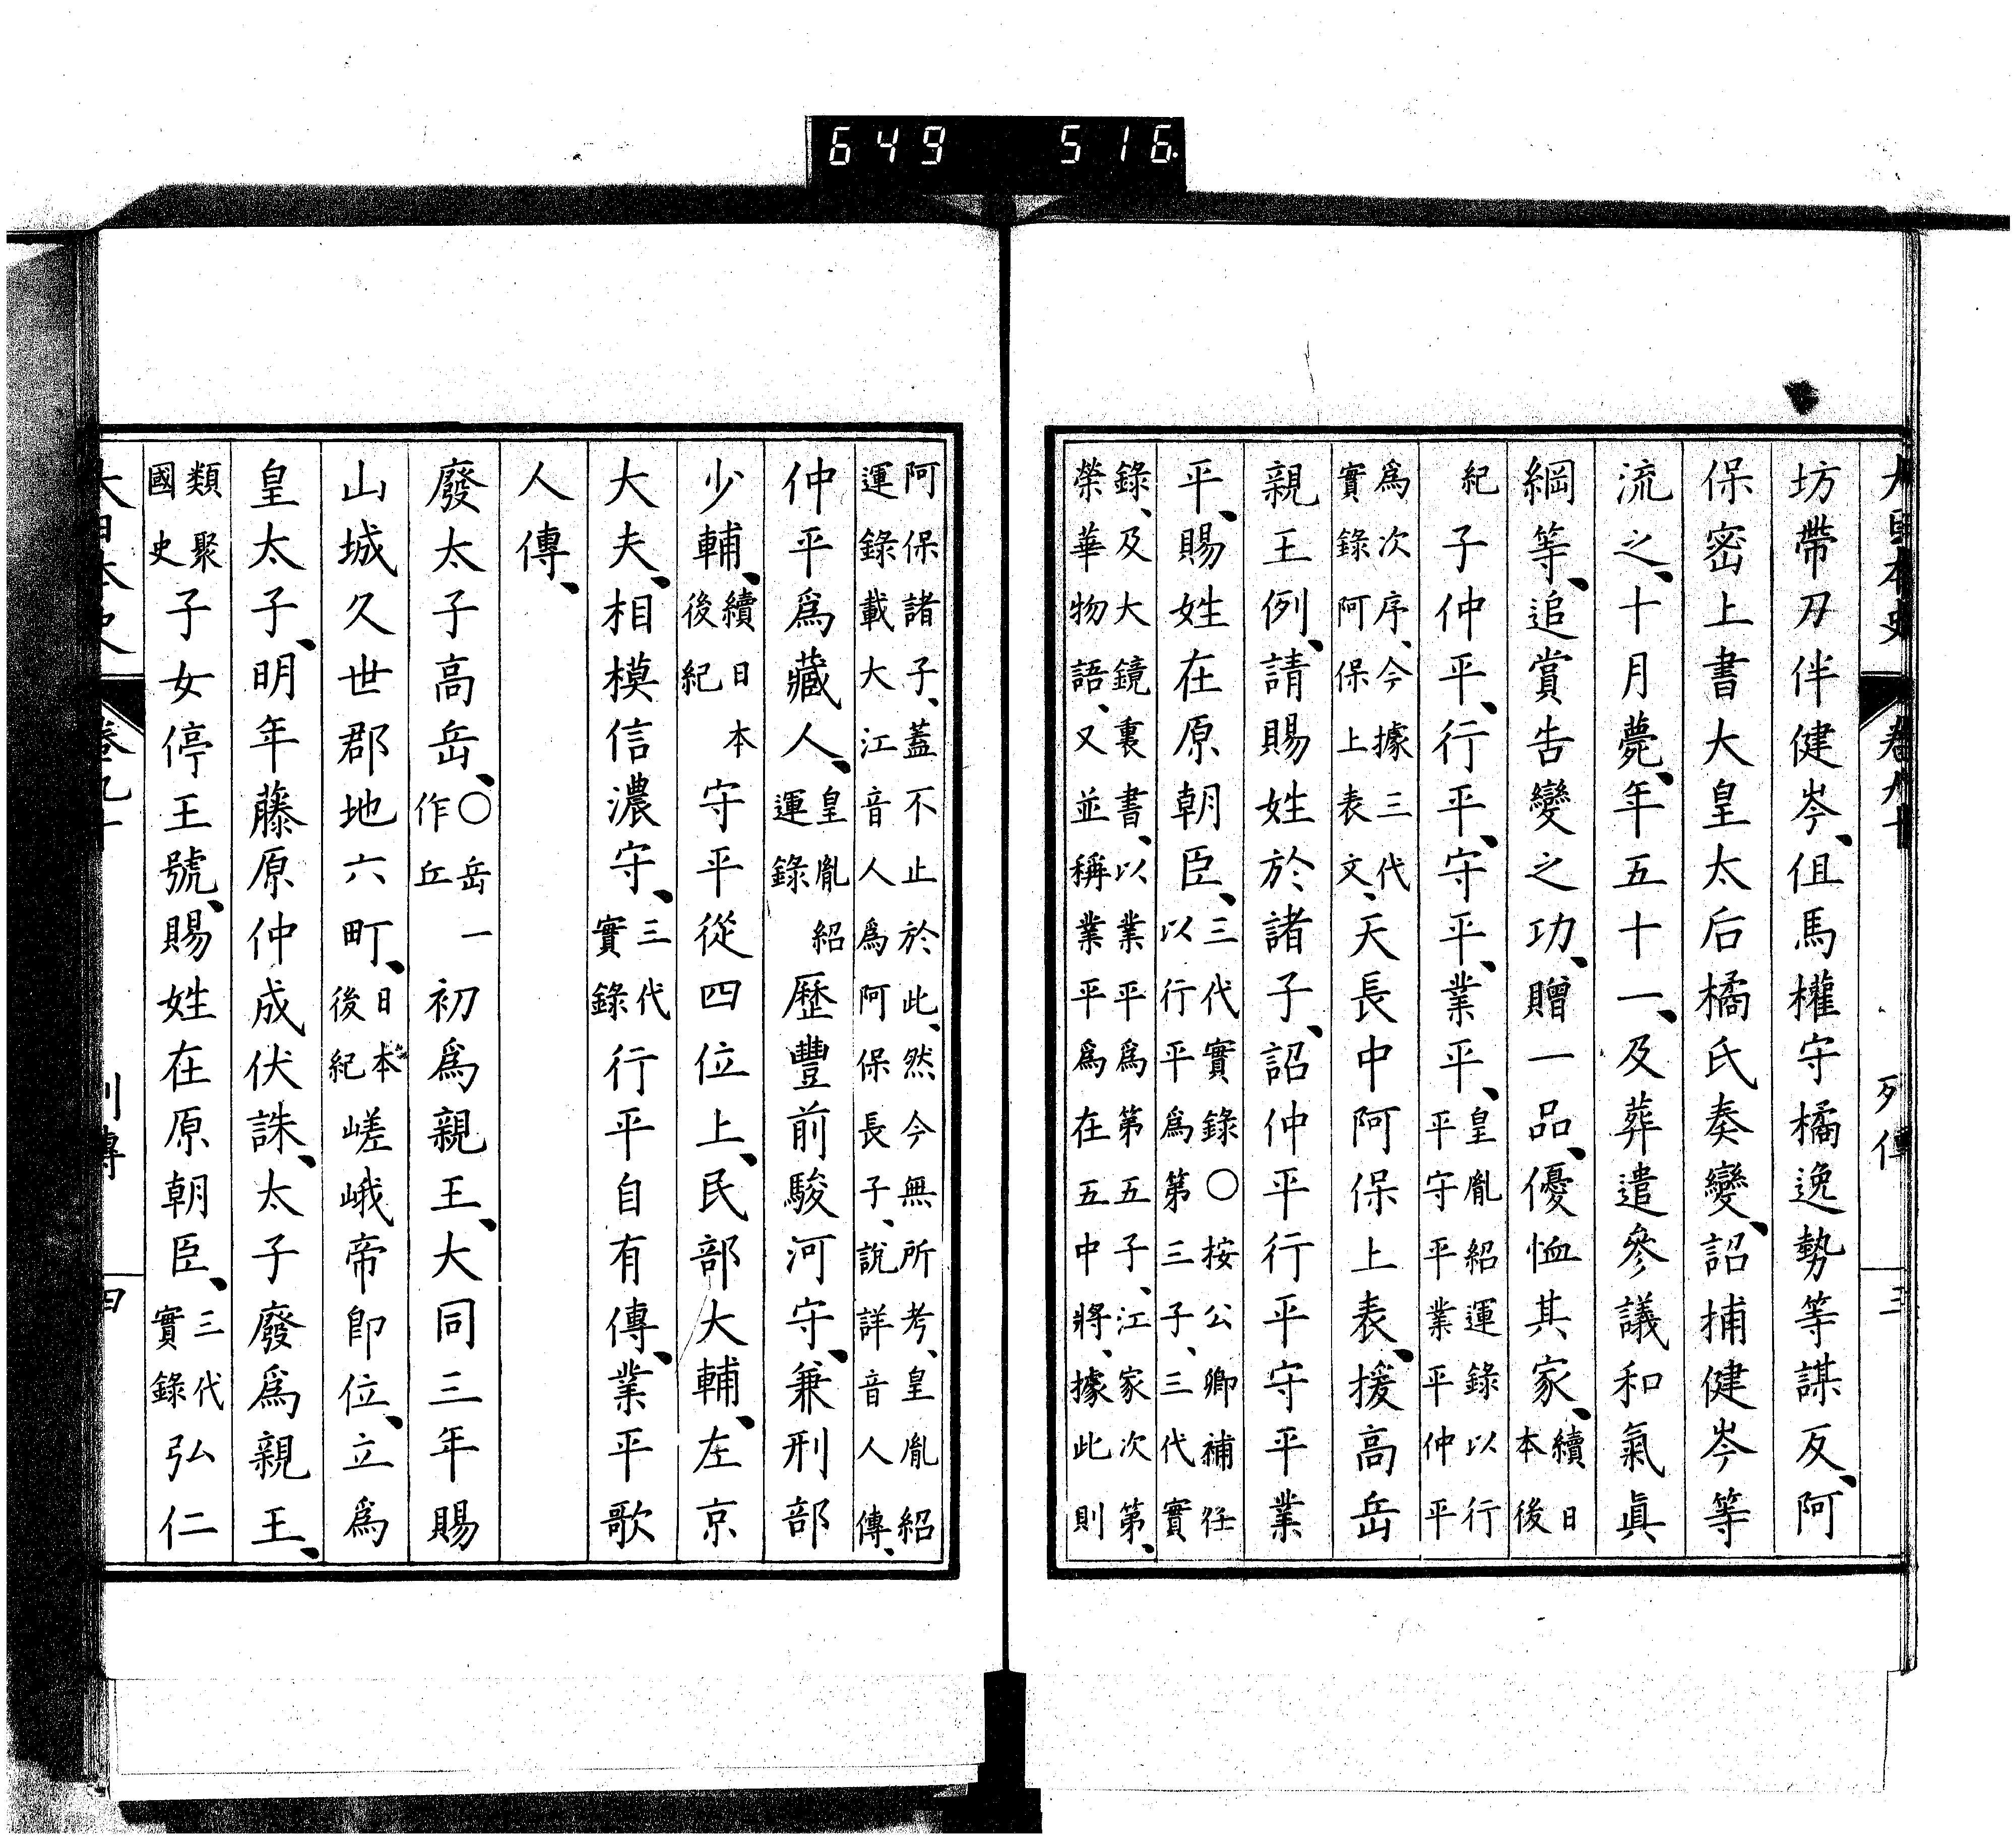 649 516
大日本史 卷九十 列傳 三
坊帶刀伴健岑、但馬權守橘逸勢等謀反、阿
保密上書大皇太后橘氏奏變、詔捕健岑等
流之、十月薨、年五十一、及葬遣參議和氣眞
綱等、追賞告變之功、贈一品、優恤其家、續日本後
紀子仲平、行平、守平、業平、皇胤紹運錄以行平守平業平仲平
爲次序、今據三代實錄阿保上表文、天長中阿保上表、援高岳
親王例、請賜姓於諸子、詔仲平行平守平業
平、賜姓在原朝臣、三代實錄〇按公卿補任以行平爲第三子、三代實
錄、及大鏡裏書、以業平爲第五子、江家次第、榮華物語、又並稱業平爲在五中將、據此則
阿保諸子、蓋不止於此、然今無所考、皇胤紹運錄載大江音人爲阿保長子、說詳音人傳、
仲平爲藏人、皇胤紹運錄歷豐前駿河守、兼刑部
少輔、續日本後紀守平從四位上、民部大輔、左京
大夫、相模信濃守、三代實錄行平自有傳、業平歌
人傳、
廢太子高岳、〇岳一作丘初爲親王、大同三年賜
山城久世郡地六町、日本後紀嵯峨帝卽位、立爲
皇太子、明年藤原仲成伏誅、太子廢爲親王、
類聚國史子女停王號、賜姓在原朝臣、三代實錄弘仁
大日本史 卷九十 列傳 四